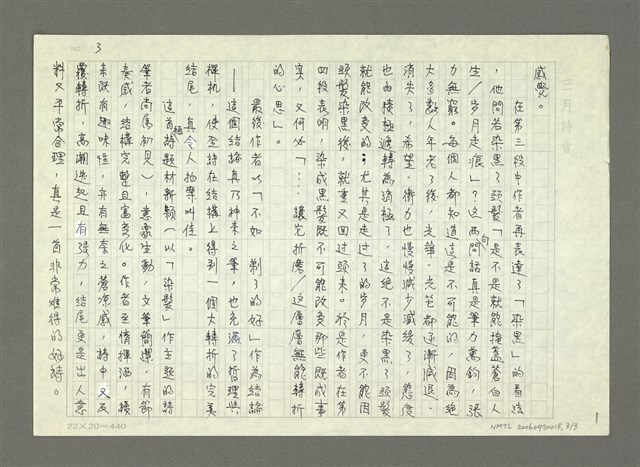 3
感覺。
在第三段中作者再表達了「染黑」的看法
，他問若染黑了頭髮「是不是就能掩蓋蒼白人
生/歲月走痕」？這两句問話真是筆力萬鈞，張
力無窮。每個人都知道這是不可能的，因為絕
大多數人年老了後，光華、光芒都逐漸減退、
消失了，希望、衝力也慢慢減少減緩了，態度
也由積極遞轉為消極了，這絕不是染黑了頭髮
就能改變的；尤其是走过了的歲月，更不能因
頭髮染黑後，就重又回过頭來。於是作者在第
四段表明，染成黑髮既不可能改變那些既成事
實，又何必「…讓它折磨/這層層無能轉折
的心思」。
最後作者以「不如 剃了的好」作為結論
——這個結論真乃神來之筆，也充滿了哲理與
禪机，使全詩在結構上得到一個大轉折的完美
結尾，真令人拍案叫佳。
這首詩題材極新穎（以「染髮」作主題的詩
筆者尚屬初見），意象生動，文筆簡潔，有節
奏感，結構完整且富変化。作者至情揮洒，樸
素既有趣味性，亦有無奈之蒼凉感，詩中又反
覆轉折，高潮迭起且有張力，結尾更是出人意
料又平常合理，真是一首非常难得的好詩。
22×20=440
NMTL 20060970018, 3/3